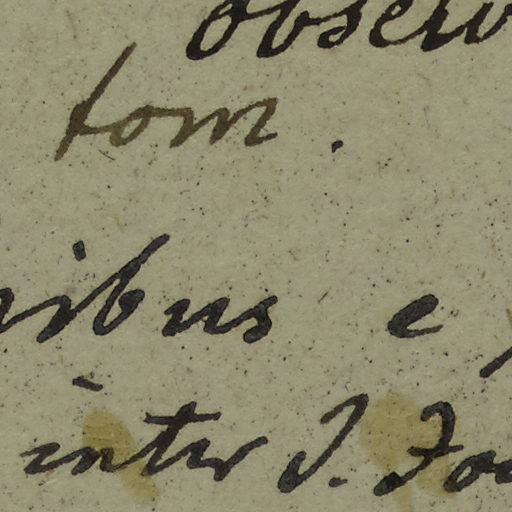 observ
tom.
ribus e
inter J. Fo